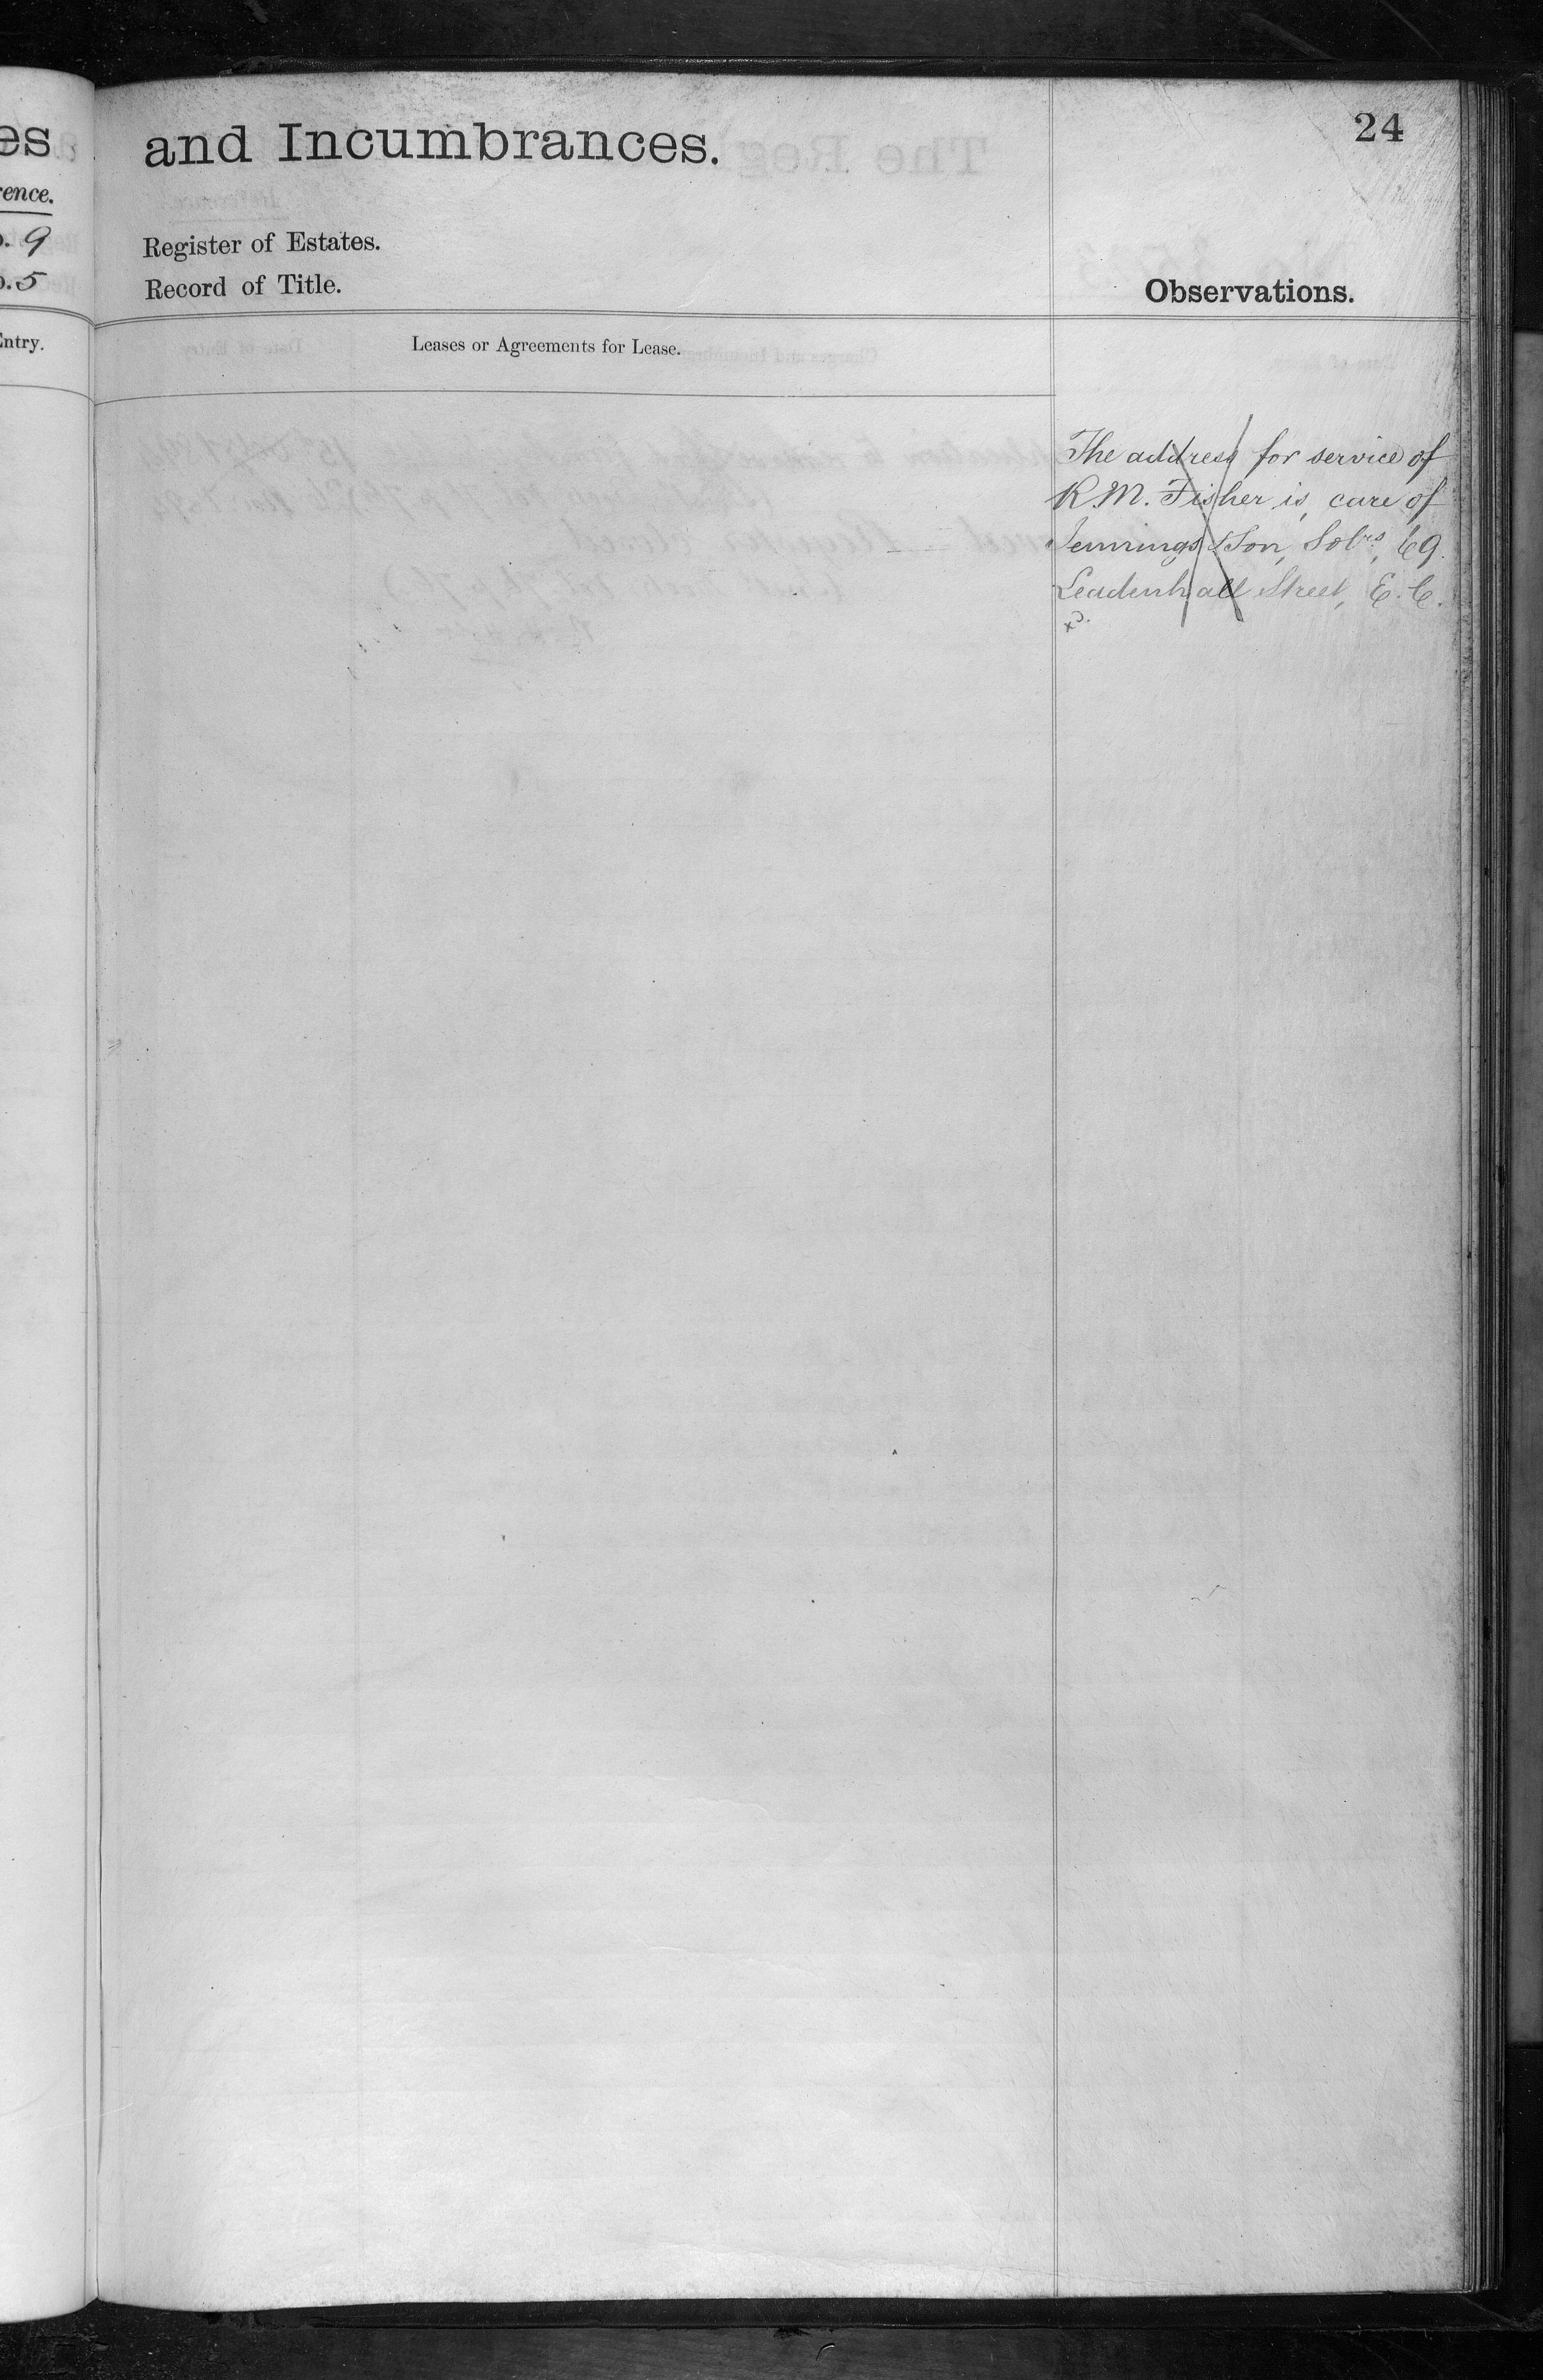 es
rence.
o. 9
o. 5
Entry.
and Incumbrances.
24
Register of Estates.
Record of Title.
Observations.
Leases or Agreements for Lease.
The address for service of
R. M. Fisher is, care of
Jennings & Son, Solrs, 69.
Leadenhall Street, E. C.